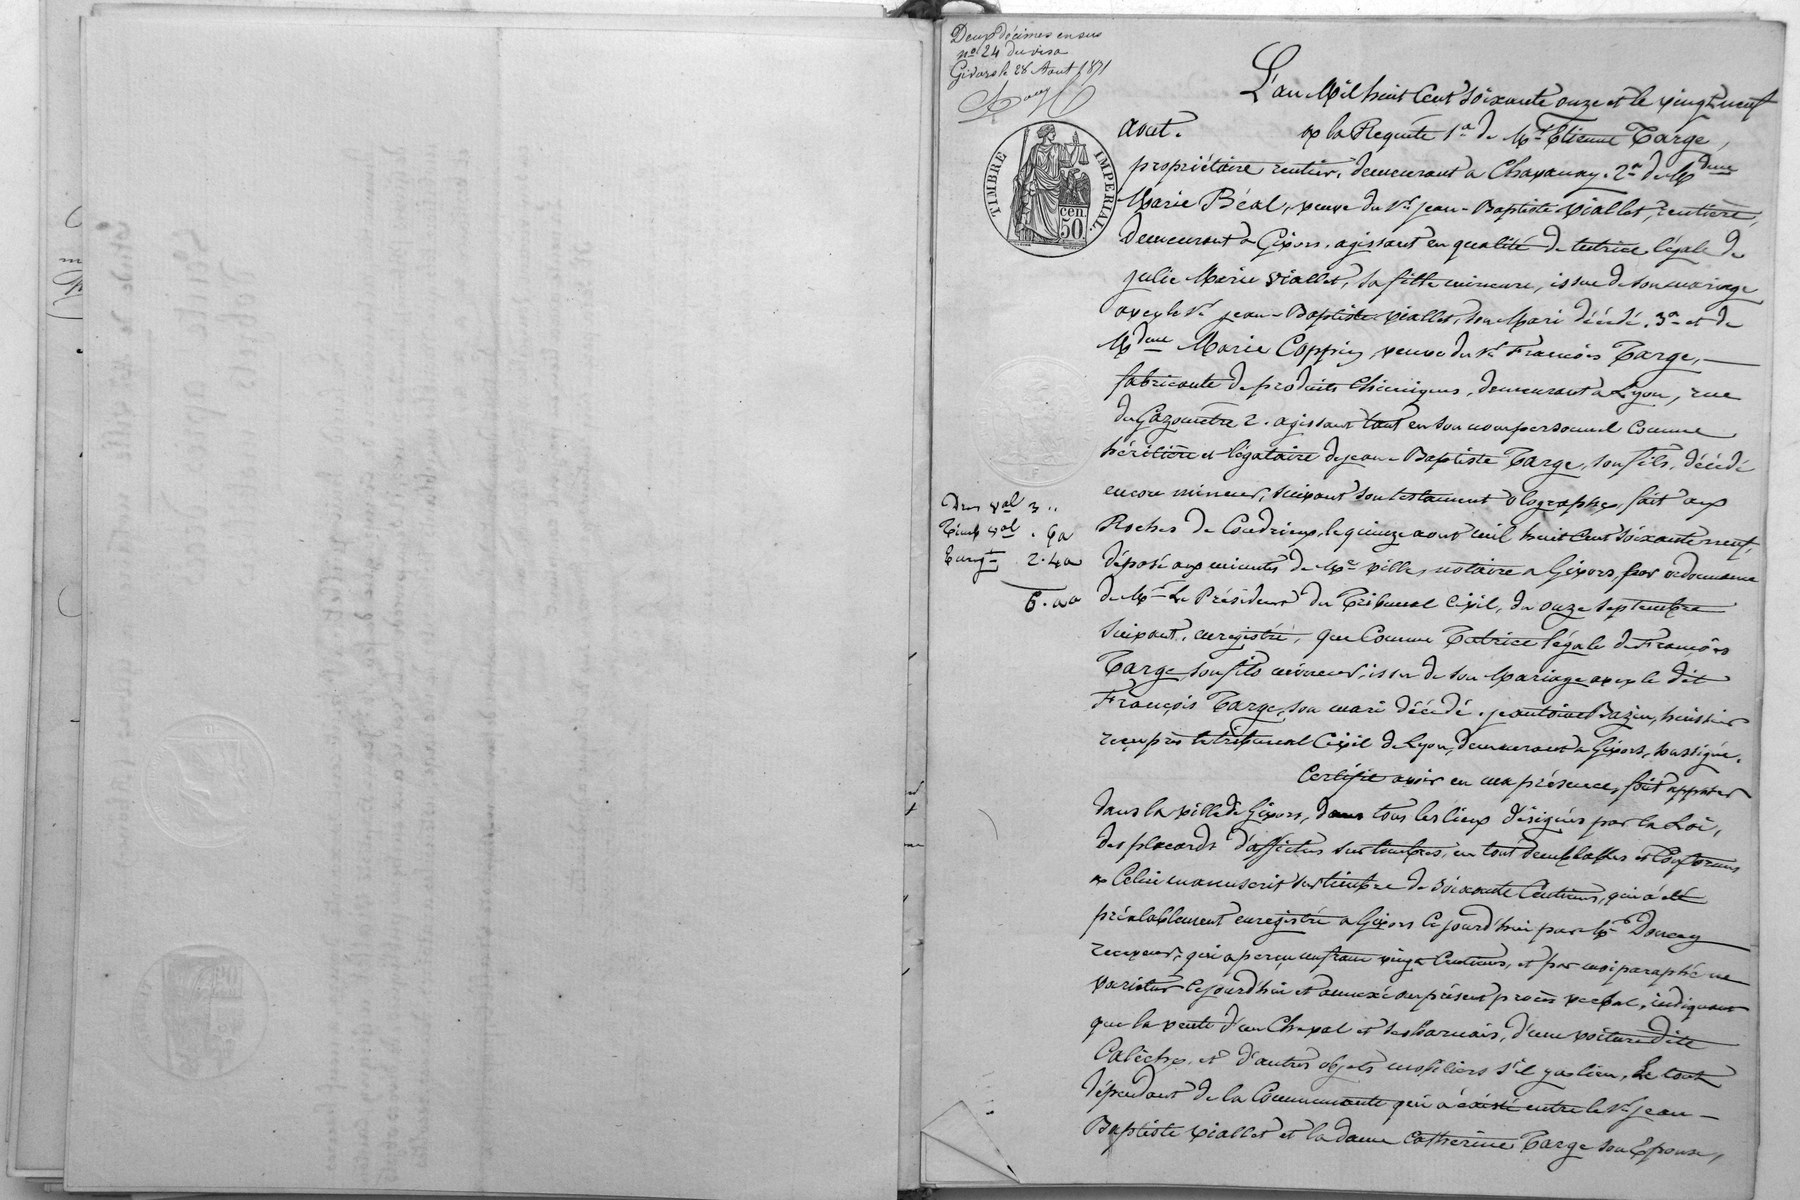 Deux décimes en sus
no 24 du visa
Givors le 28 Aout 1871
TIMBRE IMPERIAL
50 cen.
L'an Mil huit Cent Soixante onze et le vingt neuf
aout. a la Requête 1o de Mr Etienne Targe,
propriétaire rentier, demeurant a Chaponnay. 2o de Mdme
Marie Béal, veuve du Sr jean-Baptiste Viallet, rentière,
demeurant a Givors, agissant en qualité de tutrice légale de
julie Marie Viallet, sa fille mineure, issue de son mariage
avec le Sr jean-Baptiste Viallet, son Mari décédé. 3o et de
Mdme Marie Coppin, veuve du Sr François Targe,
fabricante de produits chimiques, demeurant a Lyon, rue
du Gazomètre 2. agissant tant en son nom personnel comme
héritière et légataire de jean-Baptiste Targe, son fils, décédé
encore mineur, suivant son testament olographe, fait aux
Roches de Condrieux, le quinze aout mil huit Cent Soixante neuf,
déposé aux minutes de Me Ville, notaire a Givors, par ordonnance
de Mr Le Président du Tribunal Civil, du onze Septembre
suivant, enregistré, que Comme Tutrice légale de François
Targe, son fils mineur, issu de son Mariage avec le dit
François Targe, son mari décédé. je antoine Bazin, huissier
reçu près le tribunal Civil de Lyon, demeurant a Givors, soussigné.
Certifie avoir en ma présence, fait apposer
dans la ville de Givors, dans tous les lieux désignés par la Loi,
des placards d'affiches sur timbres, en tout semblables et Conformes
a Celui manuscrit sur timbre de soixante Centimes, qui a été
préalablement enregistré a Givors Cejourd'hui par Mr Doucey
receveur, qui a perçu un franc vingt Centimes, et par moi paraphé ne
varietur Cejourd'hui et annexé au présent procès verbal, indiquant
que la vente d'un Cheval et ses harnais, d'une voiture dite
Calèche, et d'autres objets mobiliers s'il y a lieu, Le tout
dépendant de la Communauté qui a existé entre le Sr jean-
Baptiste Viallet et la dame Catherine Targe son Epouse,
3 "
. 60
2. 40
6. 00